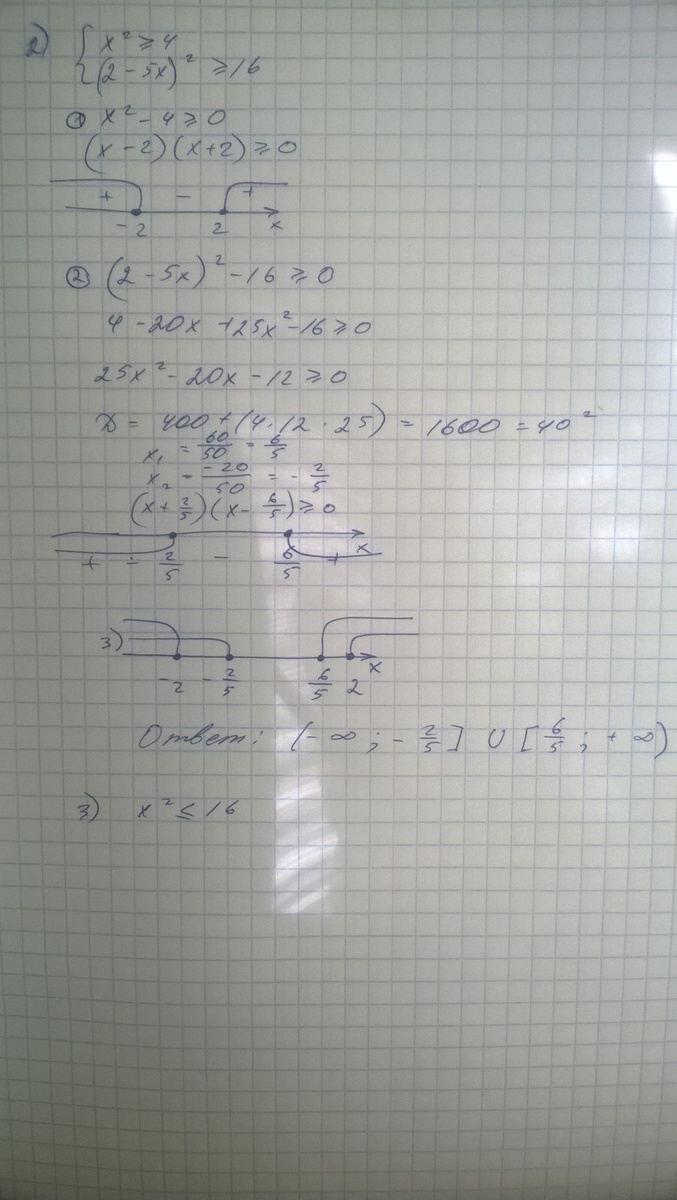 2) { x² ≥ 4
(2 - 5x)² ≥ 16
① x² - 4 ≥ 0
(x - 2)(x + 2) ≥ 0
+ - +
-2 2 x
② (2 - 5x)² - 16 ≥ 0
4 - 20x + 25x² - 16 ≥ 0
25x² - 20x - 12 ≥ 0
D = 400 + (4 · 12 · 25) = 1600 = 40²
x₁ = 60/50 = 6/5
x₂ = -20/50 = - 2/5
(x + 2/5)(x - 6/5) ≥ 0
+ - 2/5 - 6/5 + x
3)
-2 - 2/5 6/5 2 x
Ответ: (-∞ ; - 2/5] U [6/5 ; + ∞)
3) x² ≤ 16